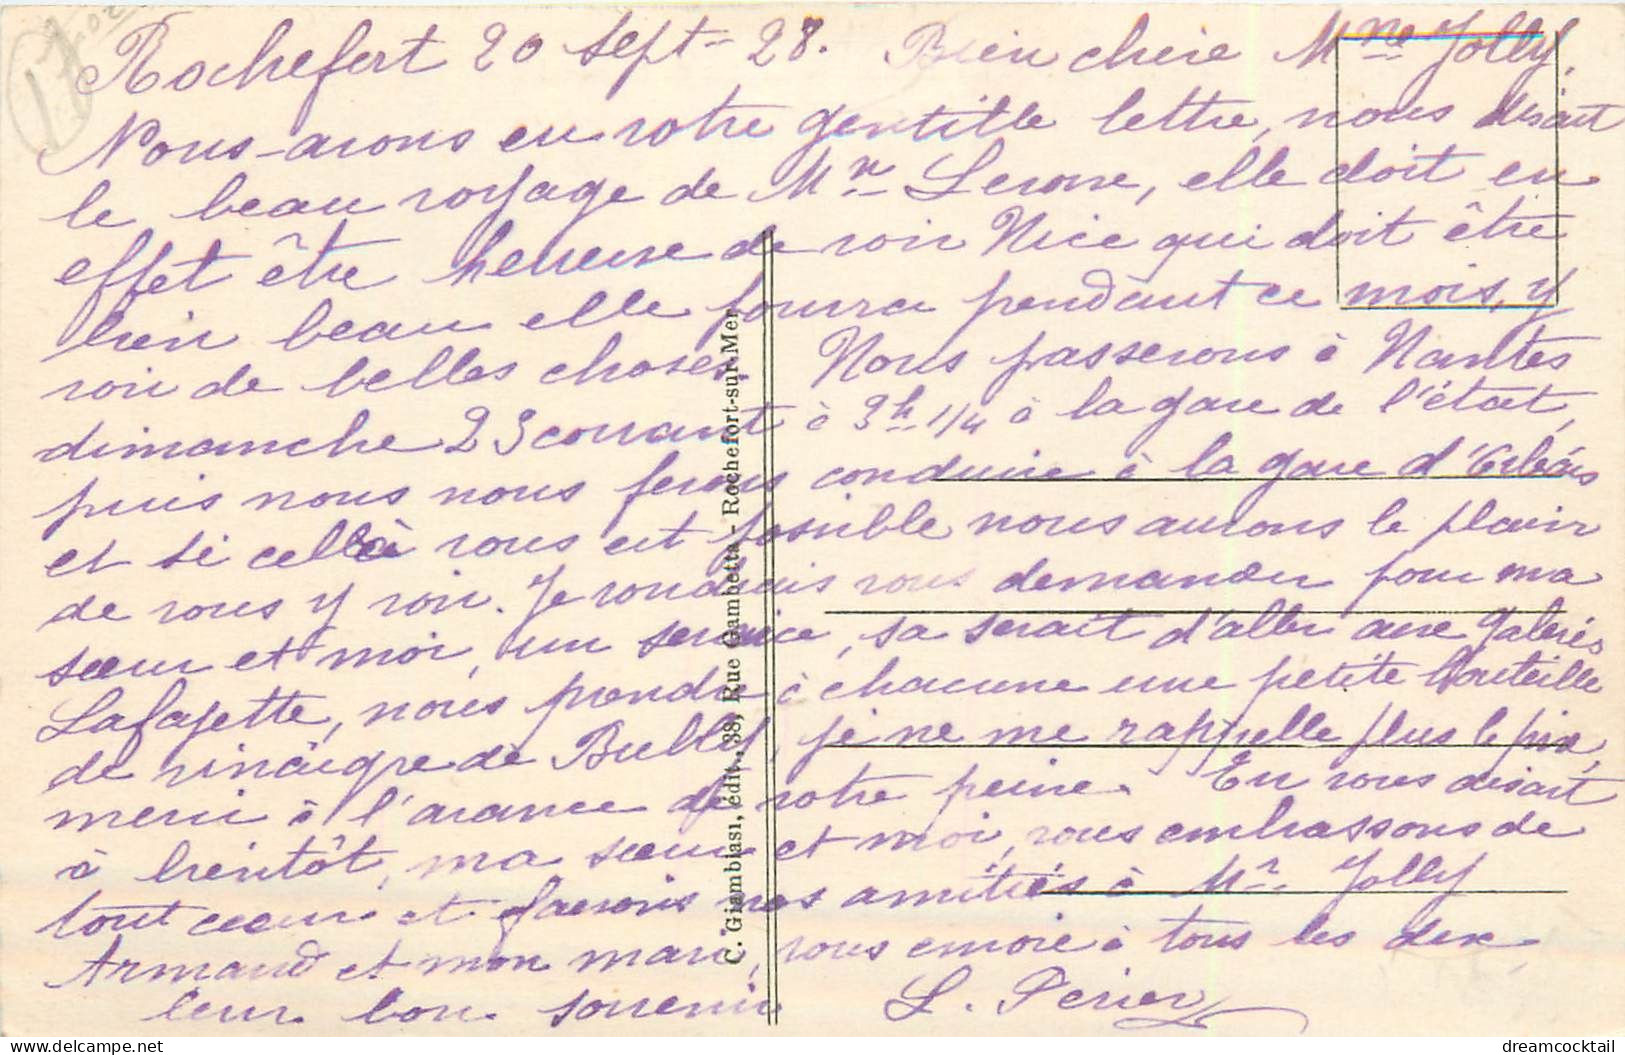 17
Rochefort 20 Sept - 28. Bien chère Mme Jolly,
Nous avons eu votre gentille lettre, nous disant
le beau voyage de Mr Lerone, elle doit en
effet être heureuse de voir Nice qui doit être
bien beau elle pourra pendant ce mois, y
voir de belles choses. Nous passerons à Nantes
dimanche 23 courant à 3h 1/4 à la gare de l'état,
puis nous nous ferons conduire à la gare d'Orléans
et si cellà vous est possible nous aurons le plaisir
de vous y voir. Je voudrais vous demander pour ma
sœur et moi, un service, sa serait d'aller aux Galeries
Lafayette, nous prendre à chacune une petite bouteille
de vinaigre de Bully, je ne me rappelle plus le prix,
merci à l'avance de votre peine. En vous disant
à bientôt, ma sœur et moi, vous embrassons de
tout cœur et faisons nos amitiés à Mr. Jolly
Armand et mon mari, vous envoie à tous les deux
leur bon souvenir L. Perier
C. Giambiasi, édit., 38, Rue Gambetta - Rochefort-sur-Mer
dreamcocktail